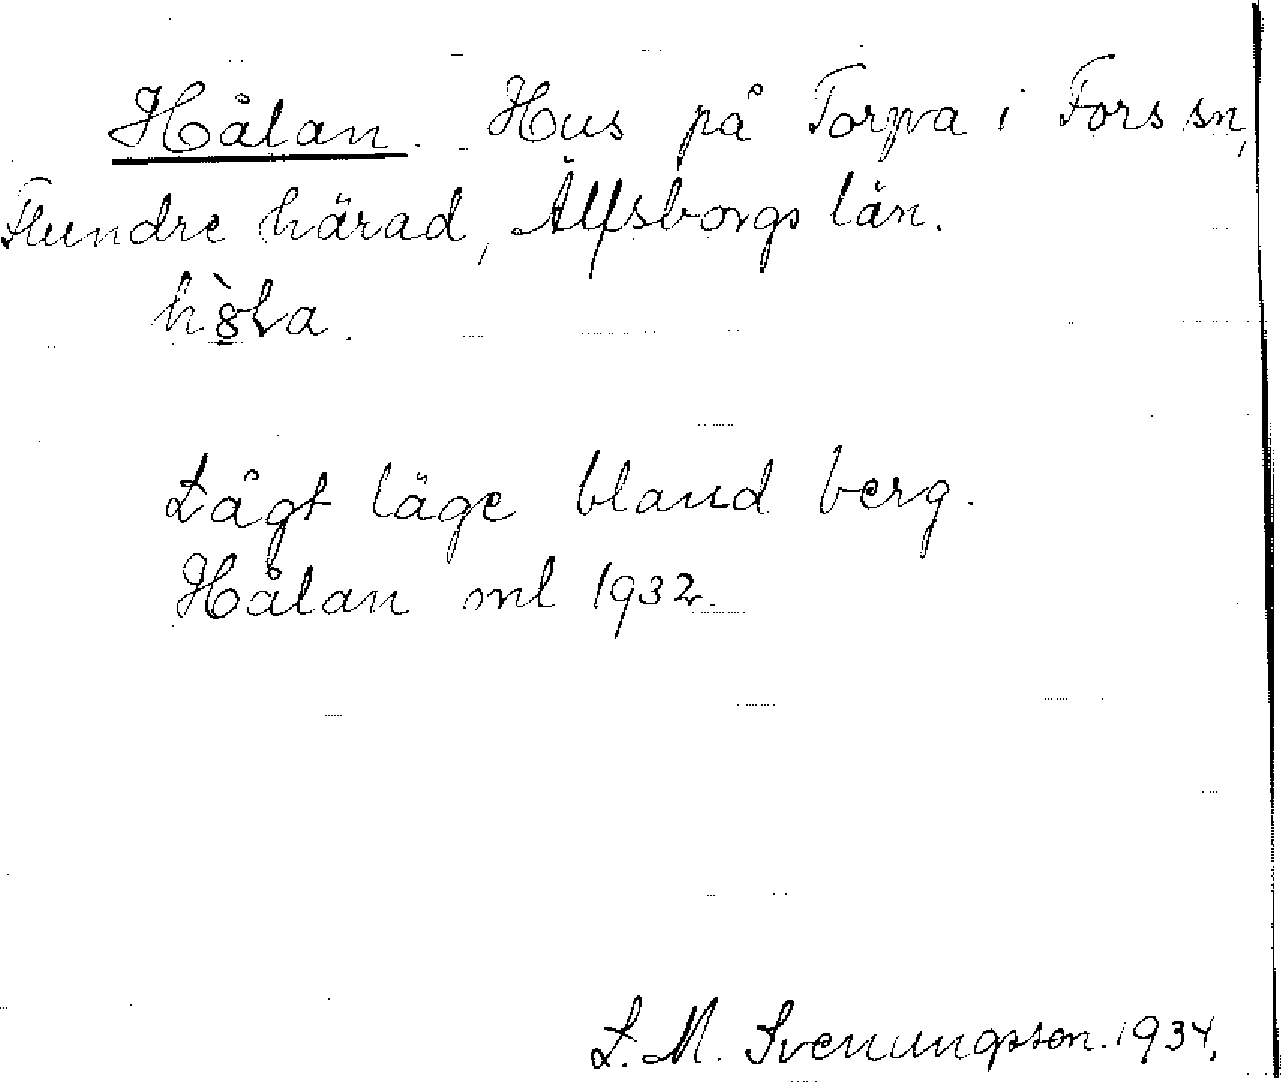 Hålan. Hus på Torpa i Fors sn,
Flundre härad, Älfsborgs län.
hò̤la.
Lågt läge bland berg.
Hålan ml 1932.
L. M. Svenungsson. 1934.